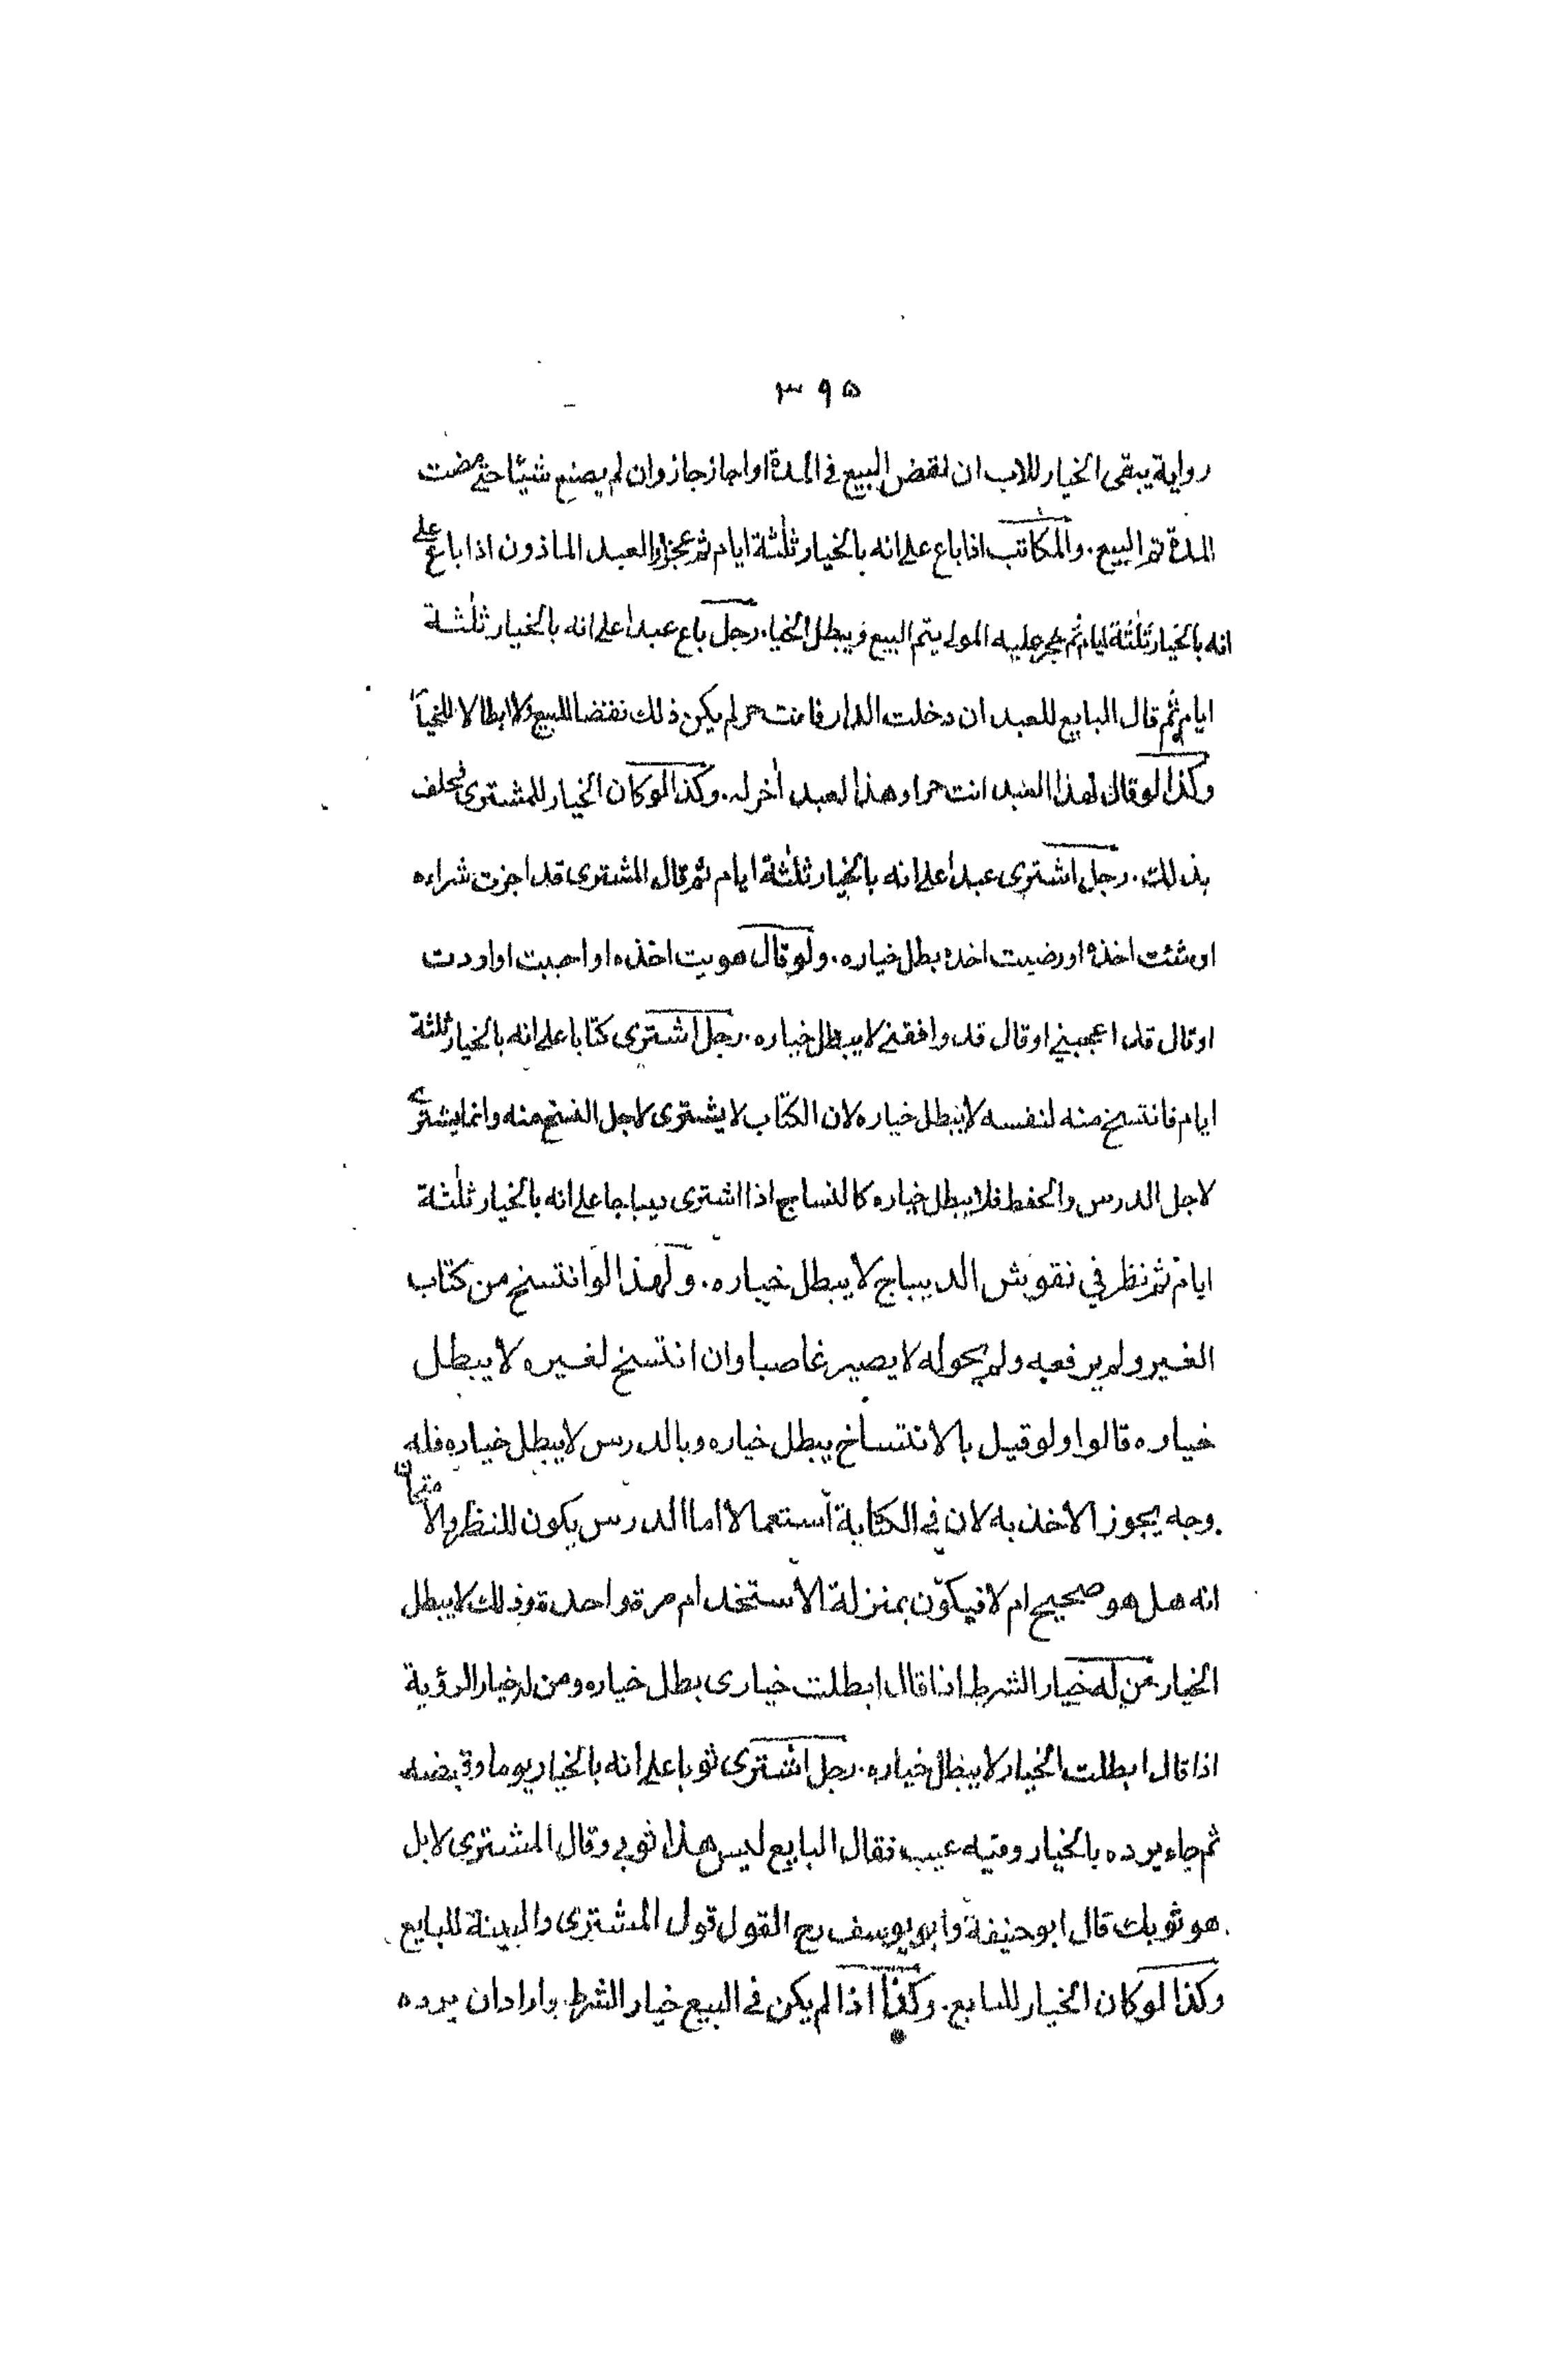 ۳۹۵
رواية يبقى الخيار للاب ان نقض البيع في المدة او اجاز جاز وان لم يصنع شيئا حتى مضت
المدة تم البيع. والمكاتب اذا باع على انه بالخيار ثلثة ايام ثم عجز او العبد الماذون اذا باع على
انه بالخيار ثلثة ايام ثم حجر عليه المولى يتم البيع ويبطل الخيار. رجل باع عبدا على انه بالخيار ثلثة
ايام ثم قال البايع للعبد ان دخلت الدار فانت حر لم يكن ذلك نقضا للبيع ولا ابطالا للخيار
وكذا لو قال لهذا العبد انت حر او هذا لعبد اٰخر له. وكذا لو كان الخيار للمشترى فحلف
بذلك. رجل اشترى عبدا على انه بالخيار ثلثة ايام ثم قال المشترى قد اجزت شراءه
او شئت اخذه او رضيت اخذه بطل خياره. ولو قال هويت اخذه او احببت او اردت
او قال قد اعجبني او قال قد وافقني لا يبطل خياره. رجل اشترى كتابا على انه بالخيار ثلثة
ايام فانتسخ منه لنفسه لا يبطل خياره لان الكتاب لا يشترى لاجل النسخ منه وانما يشترى
لاجل الدرس والحفظ فلا يبطل خياره كالنساج اذا اشترى ديباجا على انه بالخيار ثلثة
ايام ثم نظر في نقوش الديباج لا يبطل خياره. ولهذا لو انتسخ من كتاب
الغير ولم يرفعه ولم يحوله لا يصير غاصبا وان انتسخ لغيره لا يبطل
خياره قالوا ولو قيل بالانتساخ يبطل خياره وبالدرس لا يبطل خياره فله
وجه يجوز الاخذ به لان في الكتابة استعمالا اما الدرس يكون للنظر والامتحان
انه هل هو صحيح ام لا فيكون بمنزلة الاستخدام مرة واحدة وذلك لا يبطل
الخيار. من له خيار الشرط اذا قال ابطلت خيارى بطل خياره ومن له خيار الرؤية
اذا قال ابطلت الخيار لا يبطل خياره. رجل اشترى ثوبا على انه بالخيار يوما وقبضه
ثم جاء يرده بالخيار وفيه عيب فقال البايع ليس هذا ثوبي وقال المشترى لا بل
هو ثوبك قال ابو حنيفة وابو يوسف رح القول قول المشترى والبينة للبايع
وكذا لو كان الخيار للبايع. وكذا اذا لم يكن في البيع خيار الشرط واراد ان يرده